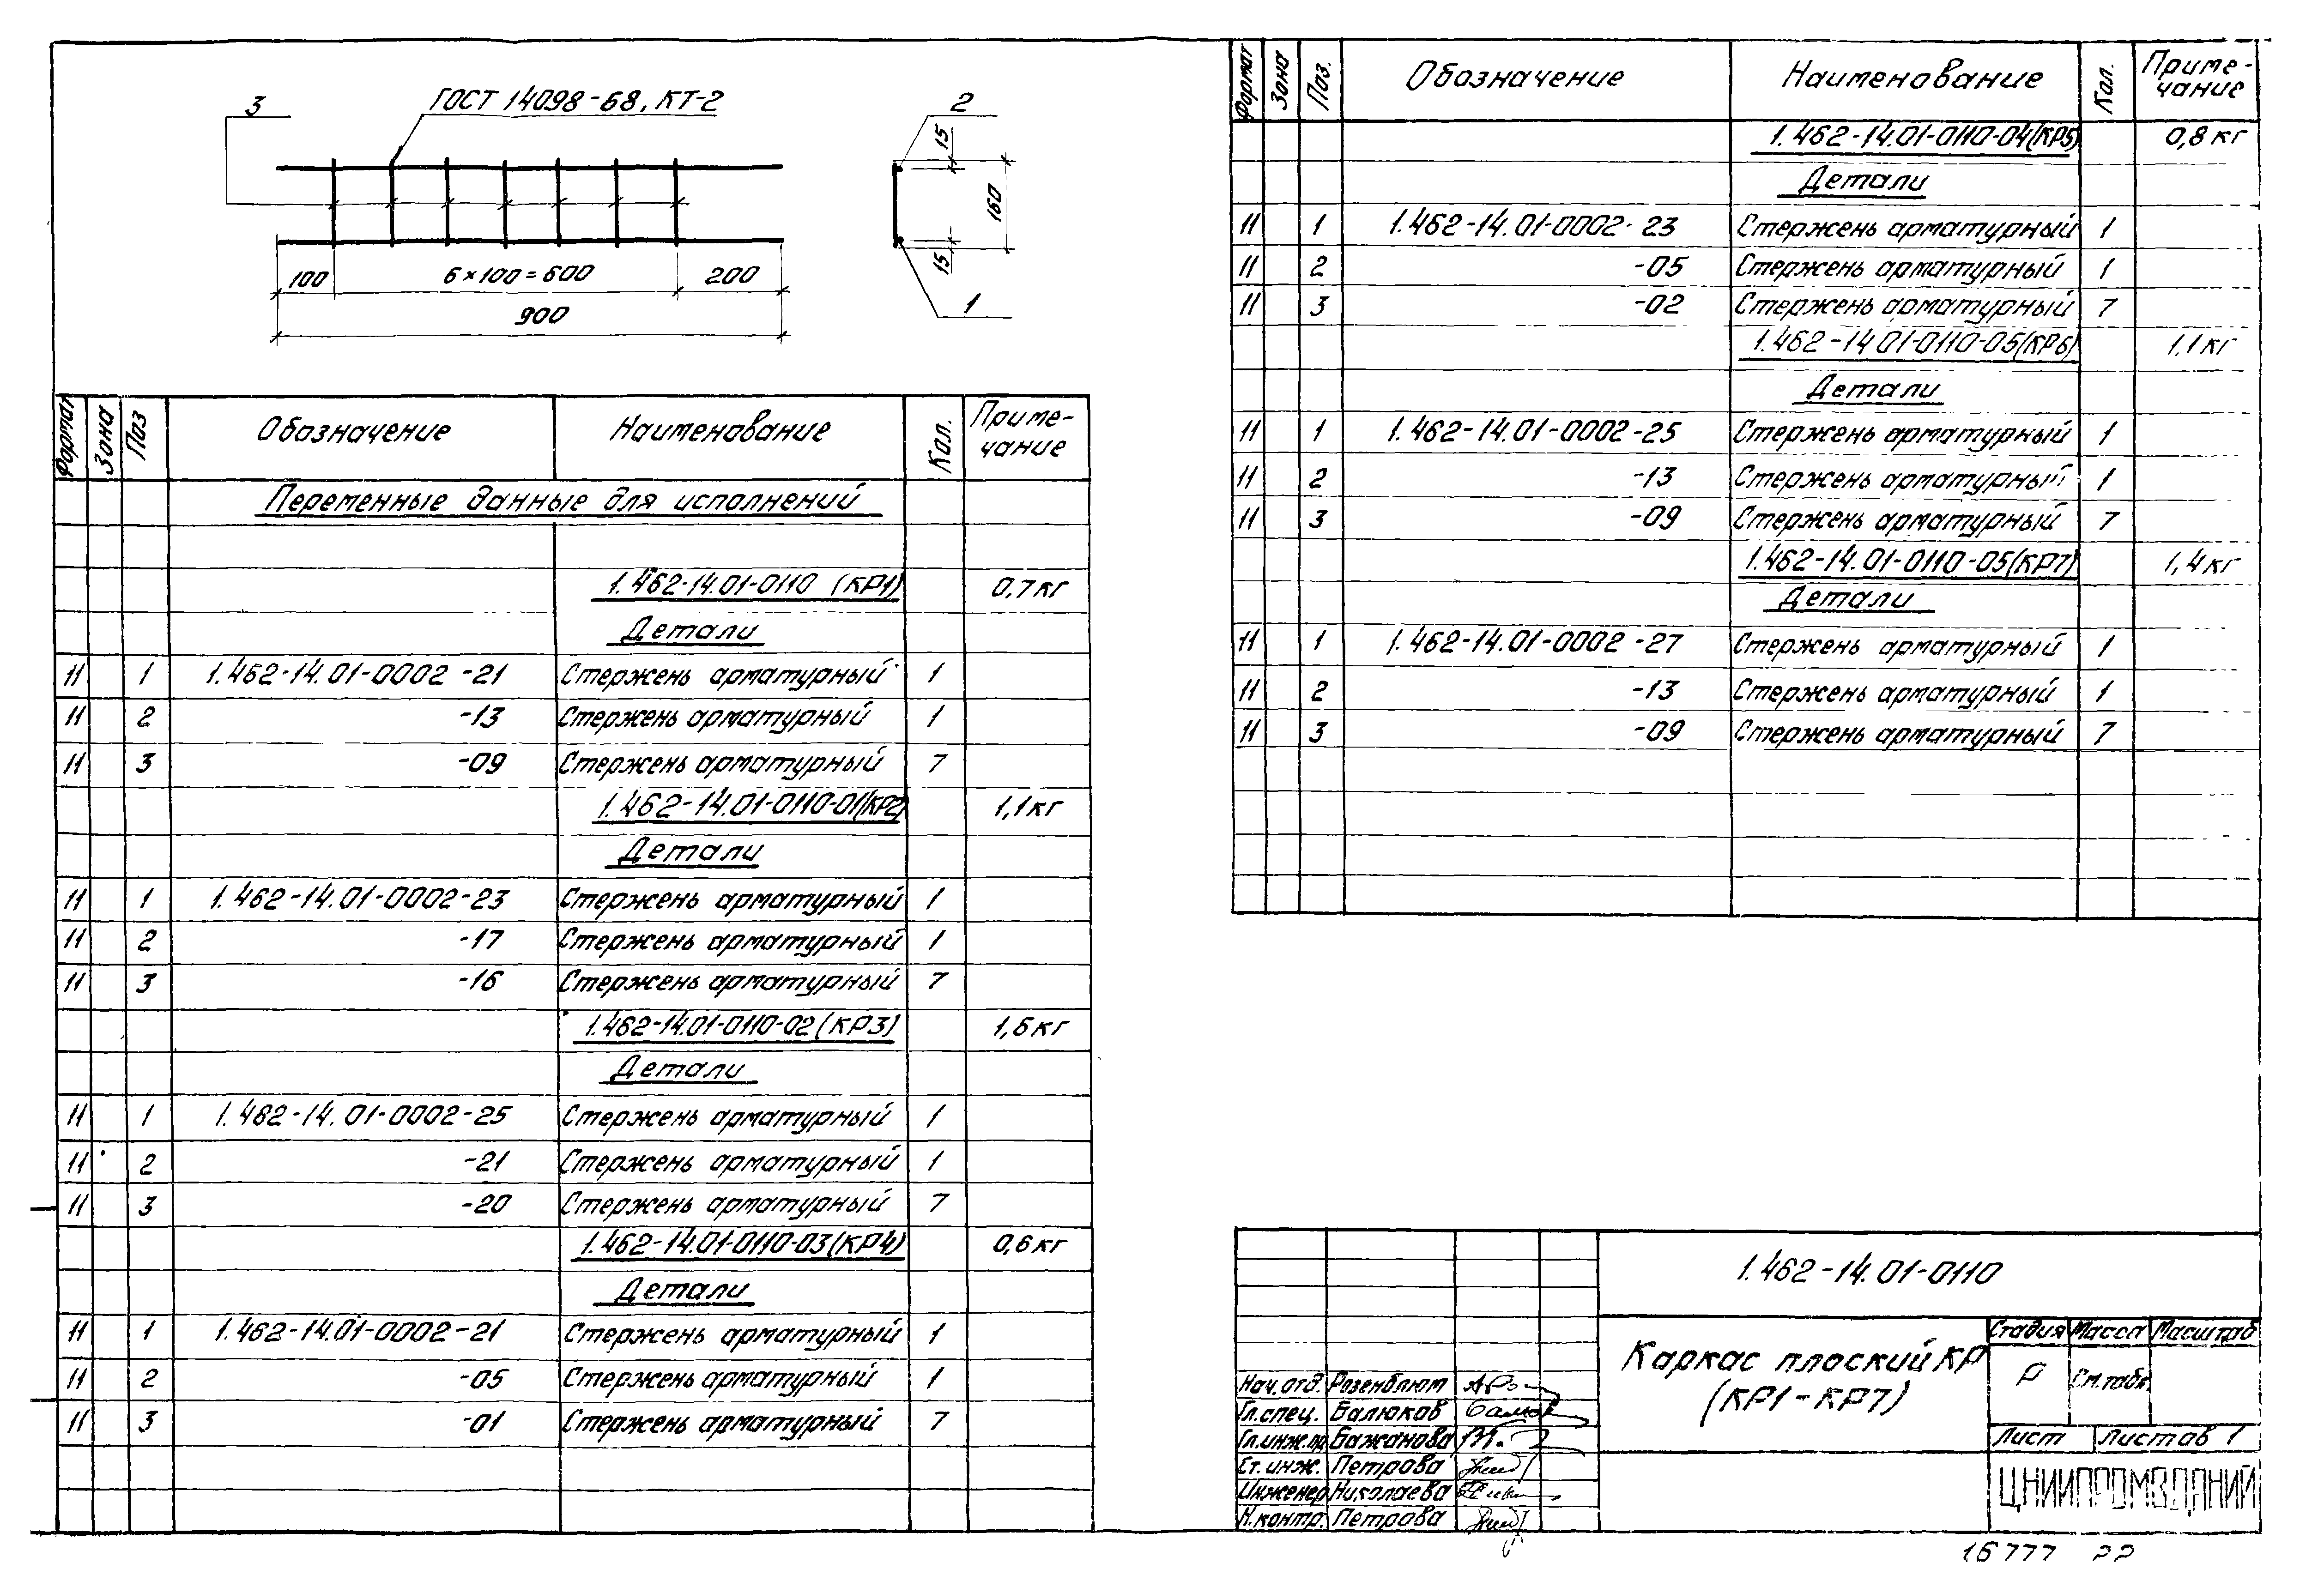 3
ГОСТ 14098-68, КТ-2
2
15
160
15
1
100
6×100=600
200
900
Формат Зона Поз Обозначение Наименование Кол. Приме-
чание
Переменные данные для исполнений
1.462-14.01-0110 (КР1) 0,7кг
Детали
11 1 1.462-14.01-0002-21 Стержень арматурный 1
11 2 -13 Стержень арматурный 1
11 3 -09 Стержень арматурный 7
1.462-14.01-0110-01(КР2) 1,1кг
Детали
11 1 1.462-14.01-0002-23 Стержень арматурный 1
11 2 -17 Стержень арматурный 1
11 3 -16 Стержень арматурный 7
1.462-14.01-0110-02(КР3) 1,6кг
Детали
11 1 1.462-14.01-0002-25 Стержень арматурный 1
11 2 -21 Стержень арматурный 1
11 3 -20 Стержень арматурный 7
1.462-14.01-0110-03(КР4) 0,6кг
Детали
11 1 1.462-14.01-0002-21 Стержень арматурный 1
11 2 -05 Стержень арматурный 1
11 3 -01 Стержень арматурный 7
Формат Зона Поз. Обозначение Наименование Кол. Приме-
чание
1.462-14.01-0110-04(КР5) 0,8кг
Детали
11 1 1.462-14.01-0002-23 Стержень арматурный 1
11 2 -05 Стержень арматурный 1
11 3 -02 Стержень арматурный 7
1.462-14 01-0110-05(КР6) 1,1кг
Детали
11 1 1.462-14.01-0002-25 Стержень арматурный 1
11 2 -13 Стержень арматурный 1
11 3 -09 Стержень арматурный 7
1.462-14.01-0110-05(КР7) 1,4кг
Детали
11 1 1.462-14.01-0002-27 Стержень арматурный 1
11 2 -13 Стержень арматурный 1
11 3 -09 Стержень арматурный 7
1.462-14.01-0110
Каркас плоский КР
(КР1-КР7)
Стадия Масса Масштаб
Р См.табл.
Лист Листов 1
ЦНИИПРОМЗДАНИЙ
Нач.отд. Розенблюм
Гл.спец. Балюков
Гл.инж.пр Бажанова
Ст.инж. Петрова
Инженер Николаева
Н.контр. Петрова
16777 22